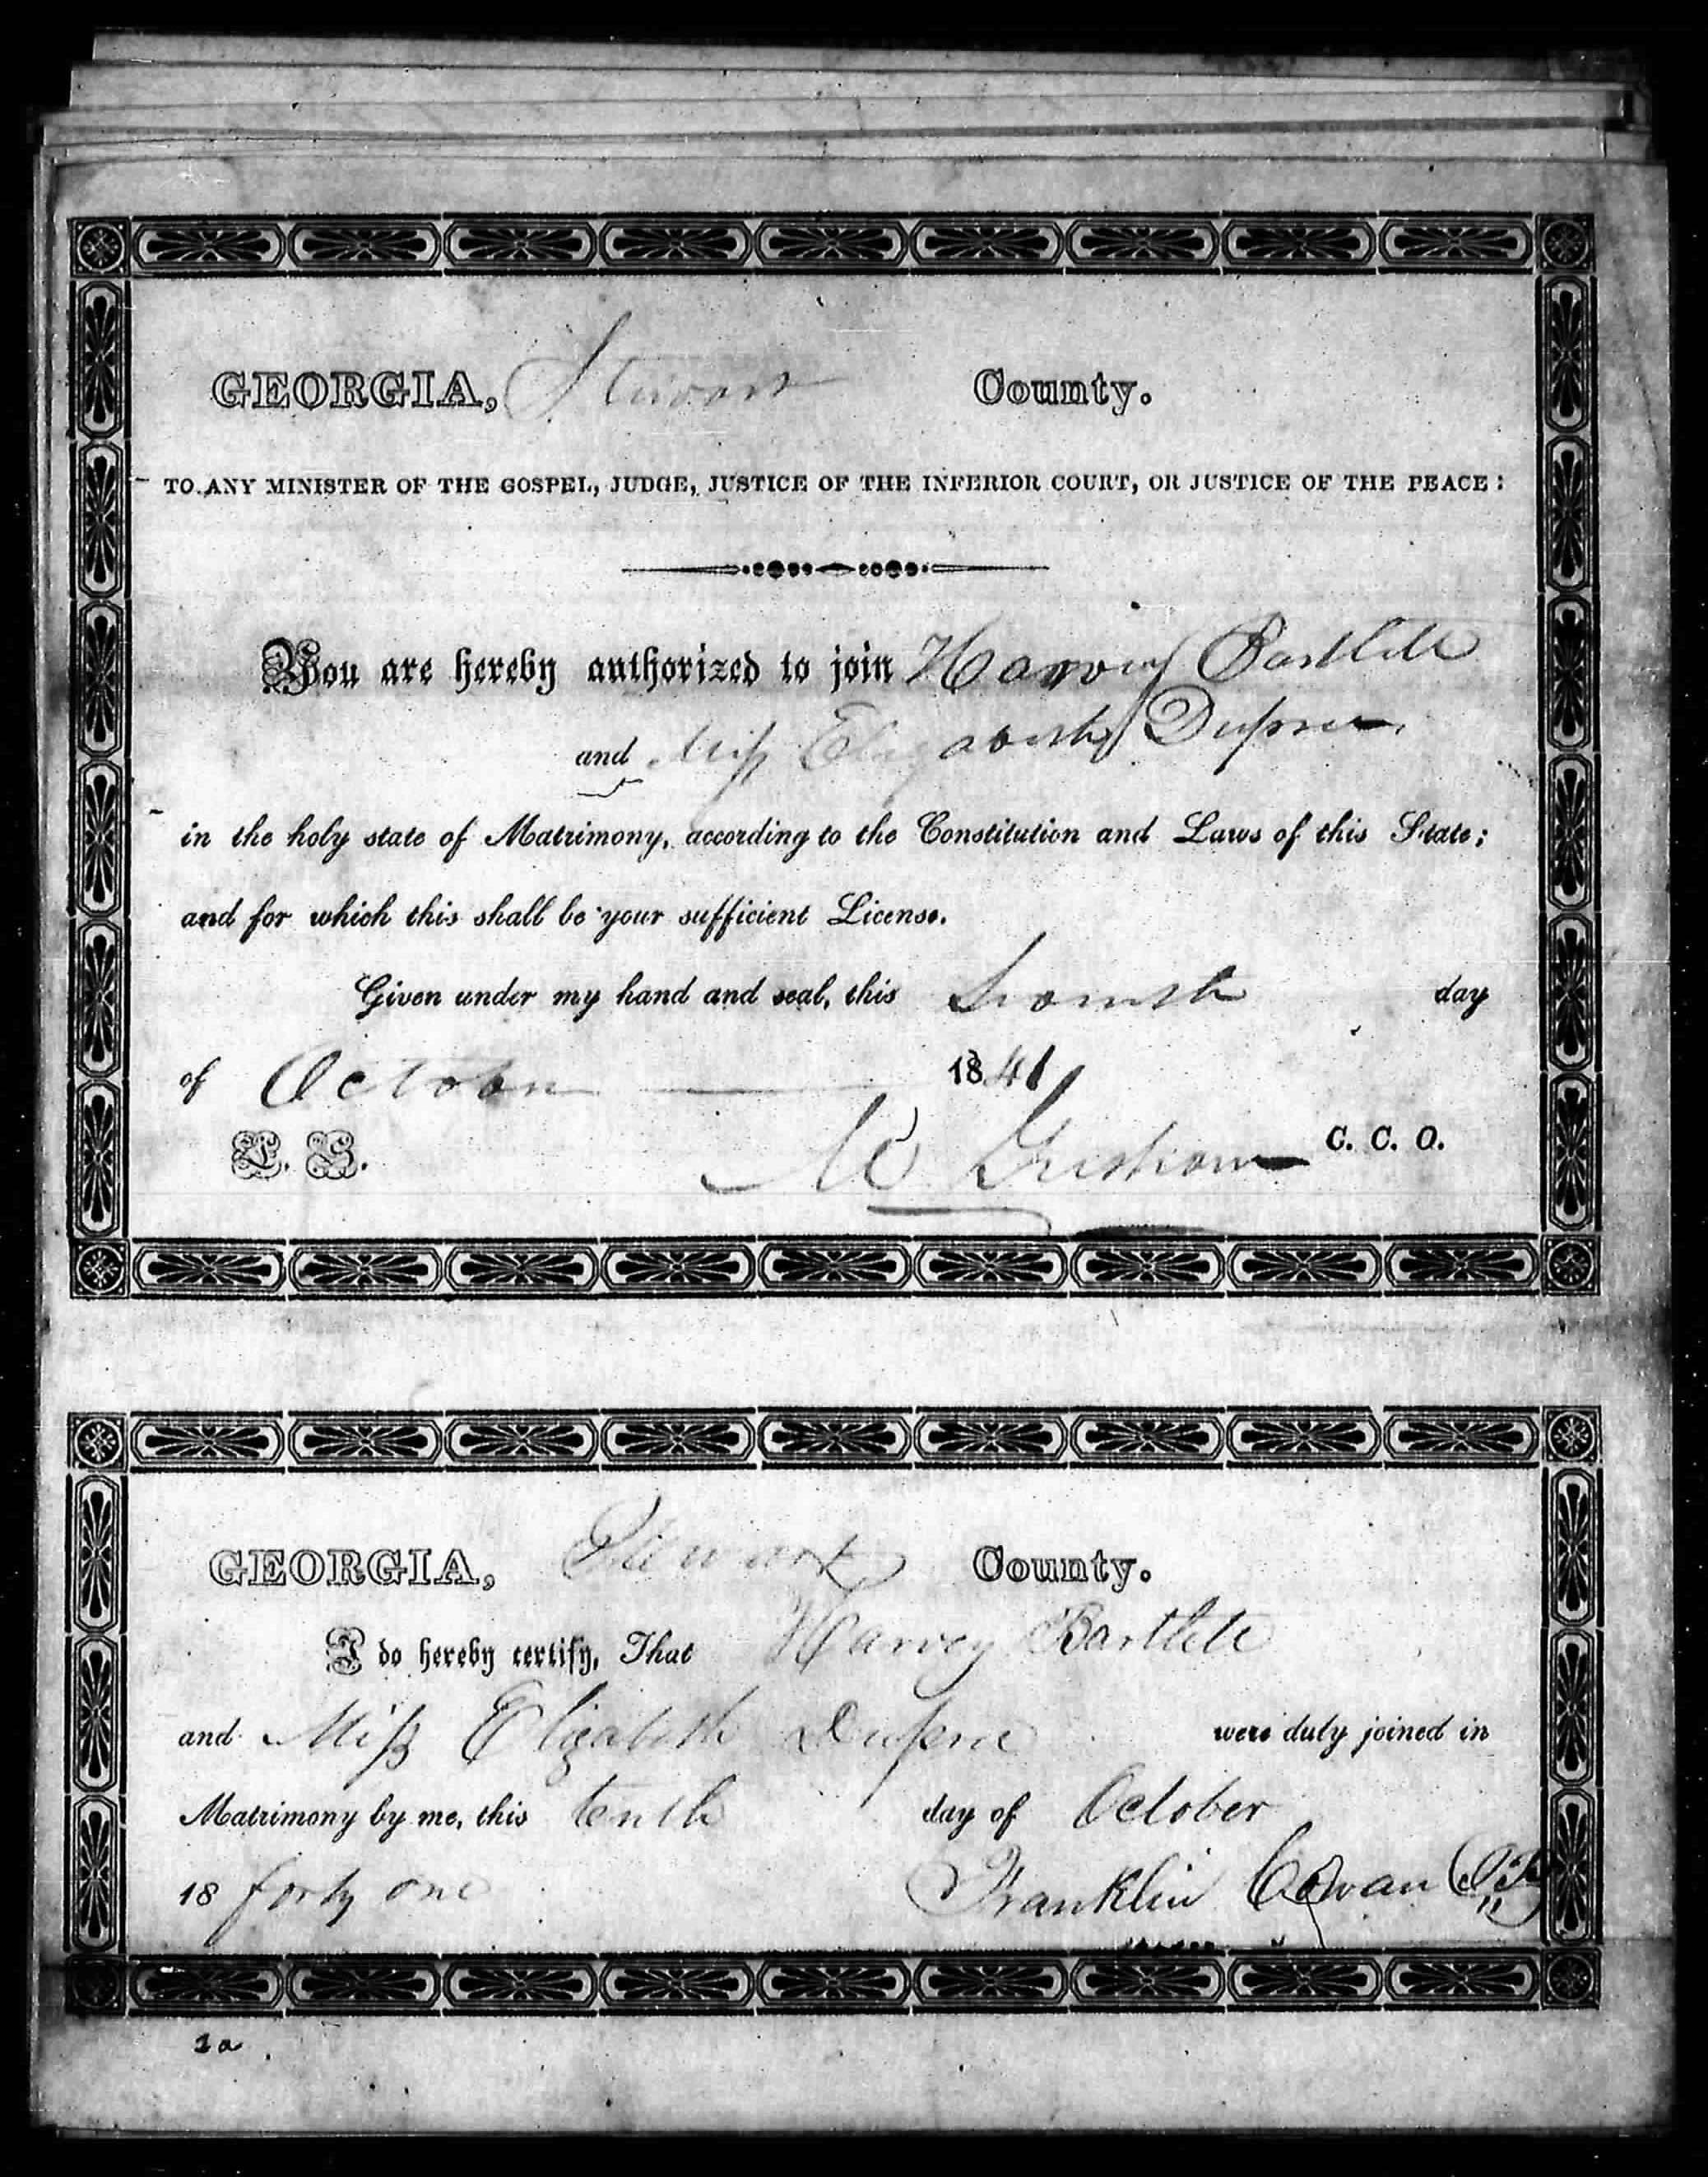 GEORGIA, Stewart County.
TO ANY MINISTER OF THE GOSPEL, JUDGE, JUSTICE OF THE INFERIOR COURT, OR JUSTICE OF THE PEACE:
You are hereby authorized to join Harvey Bartlett
and Miss Elizabeth Dupree
in the holy state of Matrimony, according to the Constitution and Laws of this State;
and for which this shall be your sufficient License.
Given under my hand and seal, this day
of October 1841
L. S. C. C. O.
GEORGIA, Stewart County.
I do hereby certify, That Harvey Bartlett
and Miss Elizabeth Dupree were duly joined in
Matrimony by me, this tenth day of October
18 forty one Franklin Cowan
1a